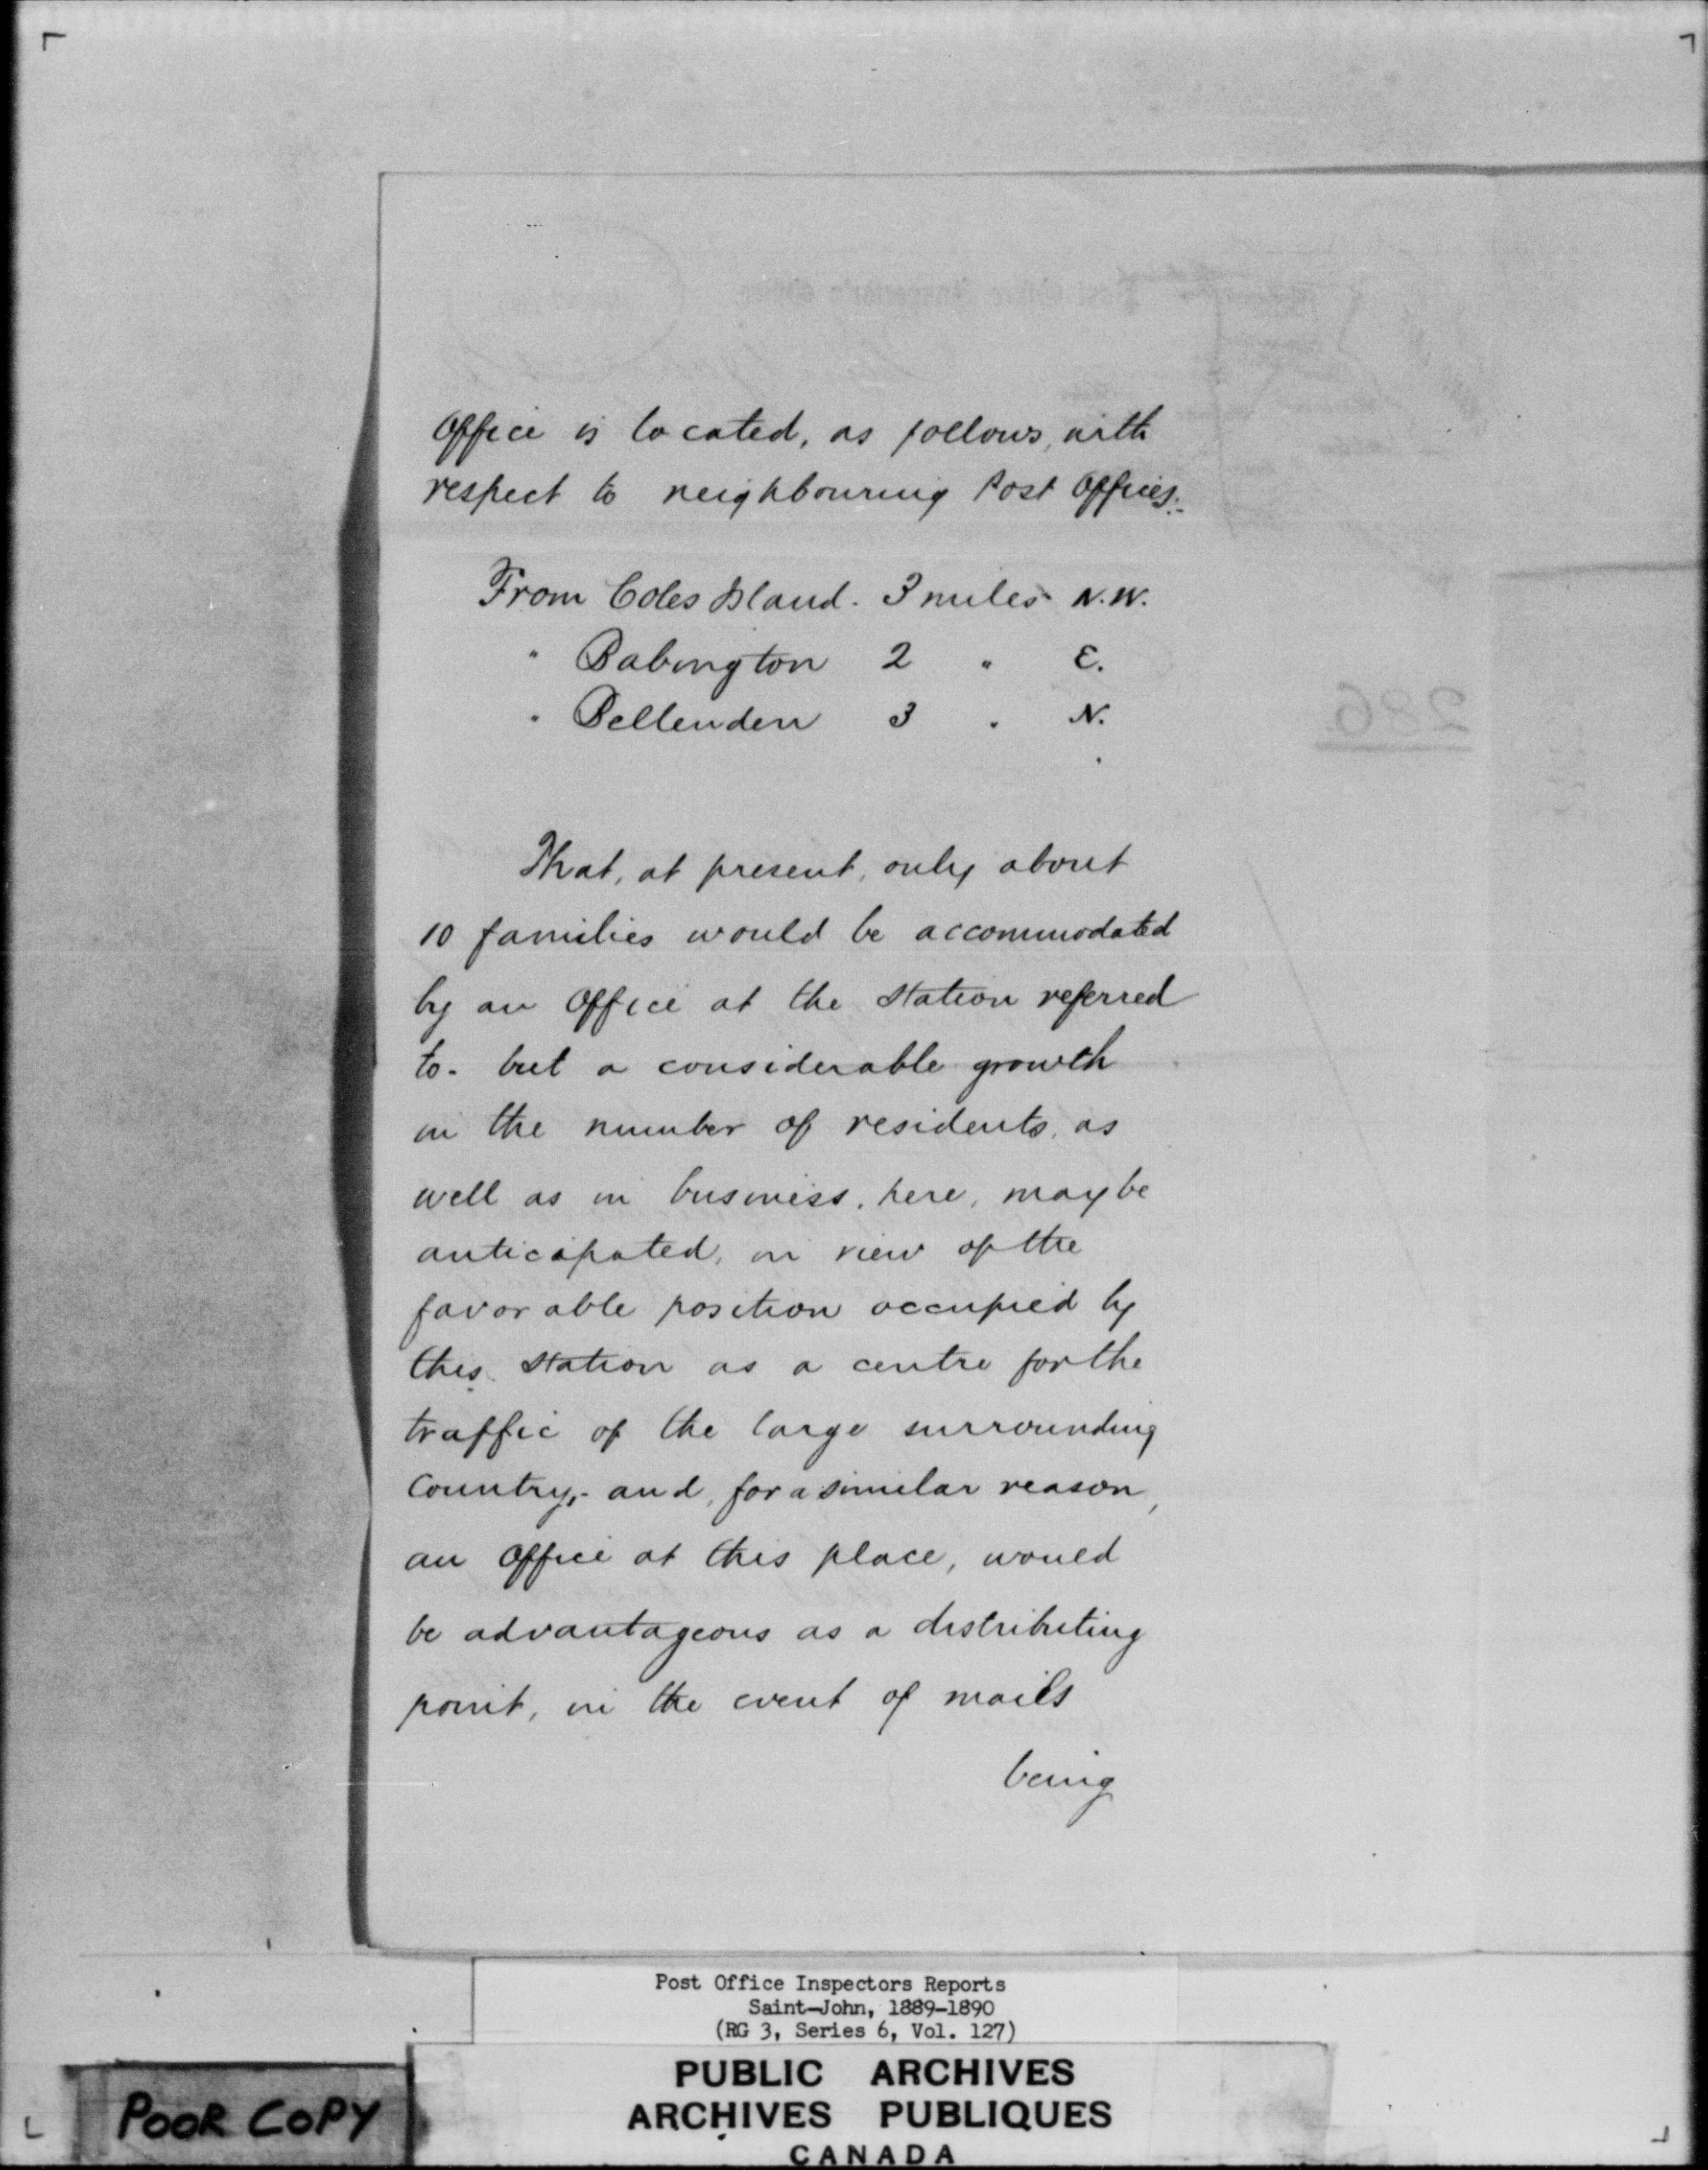 Office is located, as follows, with
respect to neighbouring Post Offices:-
From Coles Island. 3 miles N.W.
" Babington 2 " E.
" Bellenden 3 " N.
That, at present, only about
10 families would be accommodated
by an Office at the Station referred
to- but a considerable growth
in the number of residents, as
well as in business, here, may be
anticipated, in view of the
favorable position occupied by
this Station as a centre for the
traffic of the large surrounding
Country,- and, for a similar reason,
an Office at this place, would
be advantageous as a distributing
point, in the event of mails
being
286
Post Office Inspectors Reports
Saint-John, 1889-1890
(RG 3, Series 6, Vol. 127)
PUBLIC ARCHIVES
ARCHIVES PUBLIQUES
CANADA
POOR COPY